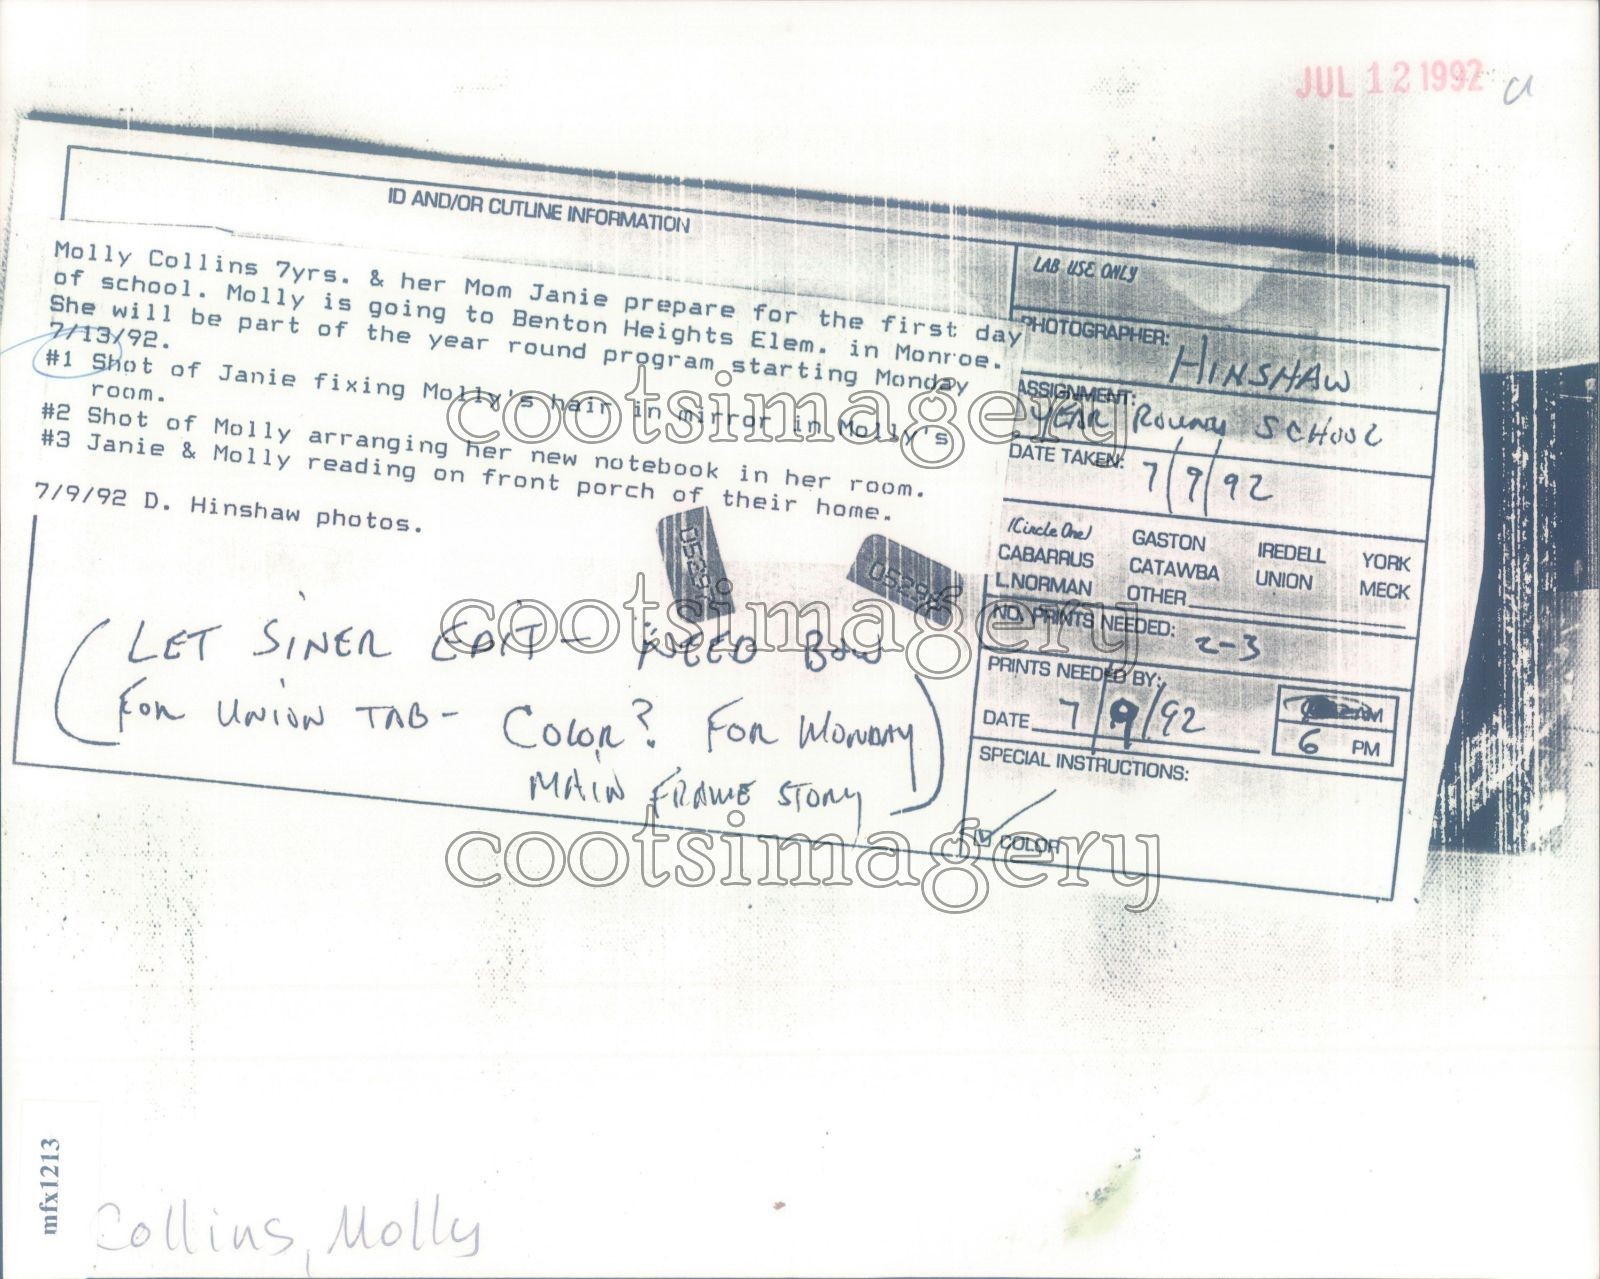 JUL 12 1992
ID AND/OR CUTLINE INFORMATION
Molly Collins 7yrs. & her Mom Janie prepare for the first day
of school. Molly is going to Benton Heights Elem. in Monroe.
She will be part of the year round program starting Monday
7/13/92.
#1 Shot of Janie fixing Molly's hair in mirror in Molly's
room.
#2 Shot of Molly arranging her new notebook in her room.
#3 Janie & Molly reading on front porch of their home.
7/9/92 D. Hinshaw photos.
LET SINER EDIT - NEED B&W
FOR UNION TAB - COLOR? FOR MONDAY
MAIN FRAME STORY
LAB USE ONLY
PHOTOGRAPHER: HINSHAW
ASSIGNMENT:
YEAR ROUND SCHOOL
DATE TAKEN: 7/9/92
(Circle One) GASTON IREDELL YORK
CABARRUS CATAWBA UNION MECK
L.NORMAN OTHER
NO. PRINTS NEEDED: 2-3
PRINTS NEEDED BY:
DATE 7/9/92 AM
6 PM
SPECIAL INSTRUCTIONS:
COLOR
cootsimagery
cootsimagery
cootsimagery
mfx1213
Collins, Molly